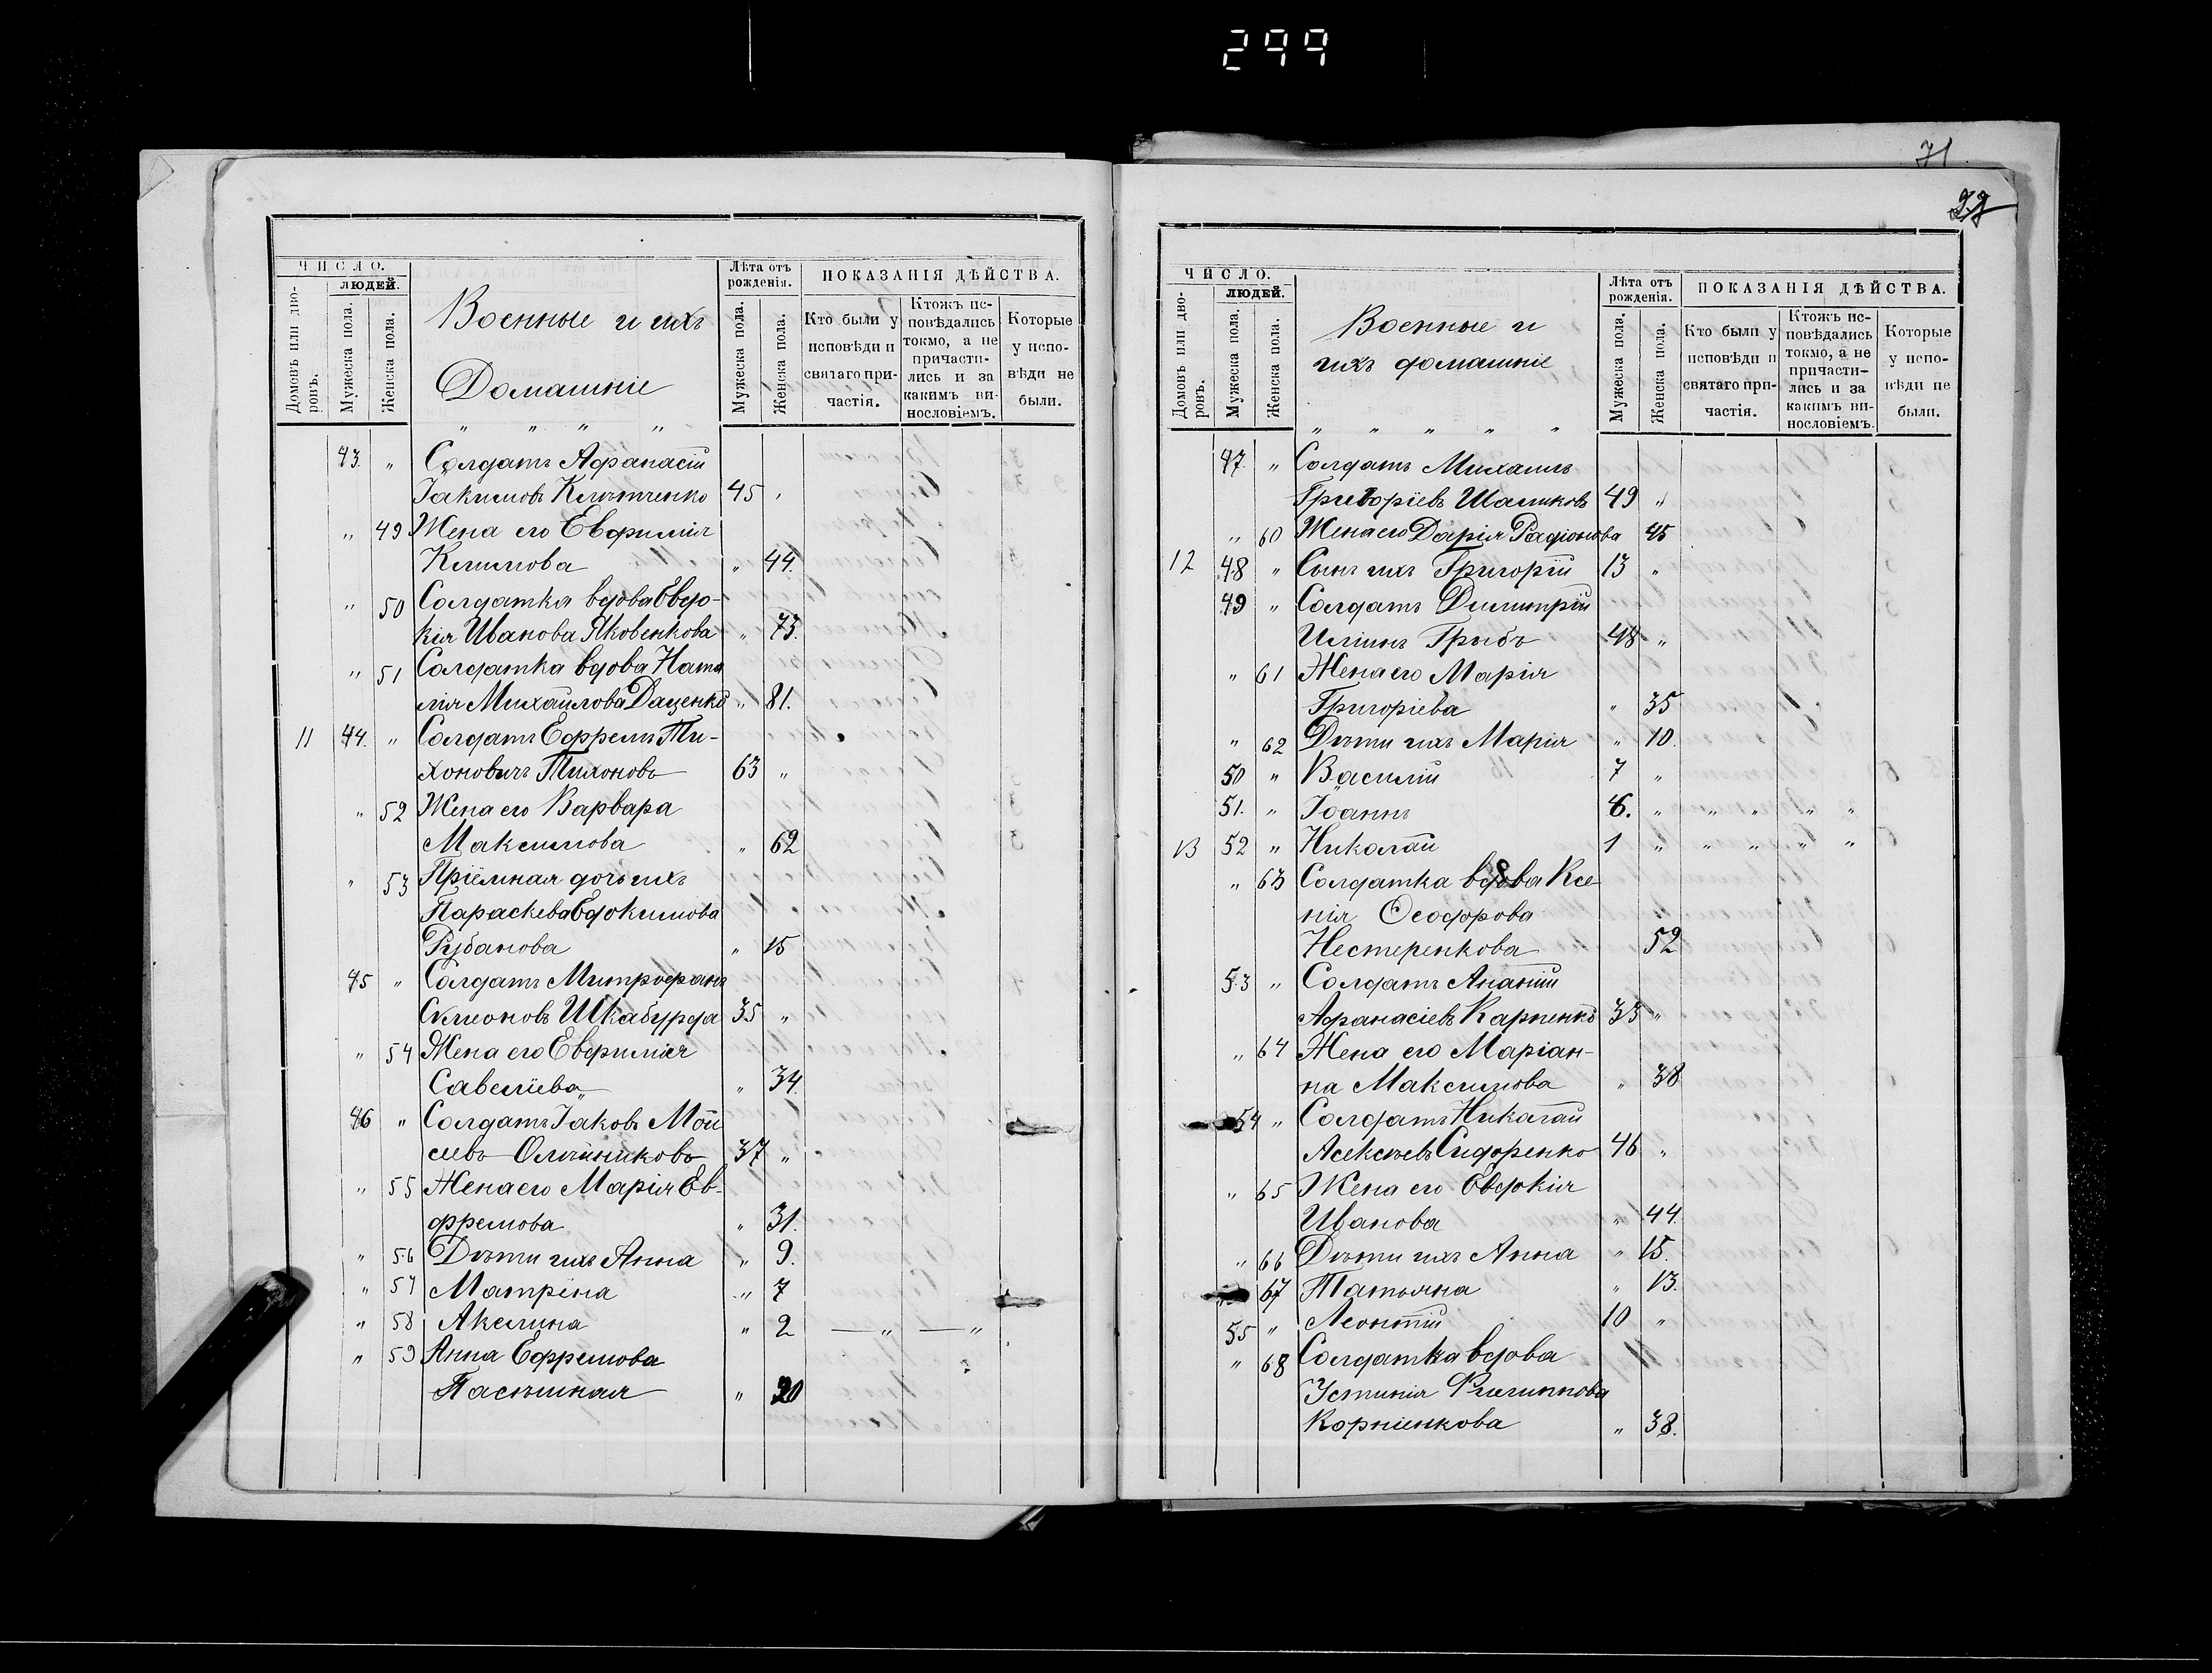 299
71
ЧИСЛО.
людей.
Домовъ или дво-
ровъ.
Мужеска пола.
Женска пола.
Военные и ихъ
Домашніе
Лѣта отъ
рожденія.
Мужеска пола.
Женска пола.
ПОКАЗАНІЯ ДѢЙСТВА.
Кто были у
исповѣди и
святаго при-
частія.
Ктожъ ис-
повѣдались
токмо, а не
причасти-
лись и за
какимъ ви-
нословіемъ.
Которые
у испо-
вѣди не
были.
" " " "
43. " Солдатъ Афанасій
Іакимовъ 45 "
" 49 Жена его Евфимія
Климова " 44.
" 50 Солдатка вдова Евдо-
кія Иванова Яковенкова " 73.
" 51 Солдатка вдова Ната
лія Михайлова Даценко " 81.
11 44. " Солдатъ Ефремъ Ти-
хоновичъ Тихоновъ 63 "
" 52 Жена его Варвара
Максимова " 62
" 53 Пріёмная дочь ихъ
Параскева Евдокимова
Рубанова " 15
45 " Солдатъ Митрофанъ
Шкабурда 35 "
" 54 Жена его Евфимія
Савеліева " 34.
46 " Солдатъ Іаковъ Мой
сеевъ Олѣйниковъ 37 "
" 55 Жена его Марія Ев-
фремова " 31.
" 56 Дѣти ихъ Анна " 9.
" 57 Матрёна " 7
" 58 Акелина " 2 — " — "
" 59 Анна Ефремова
Пасѣшная " 20
ЧИСЛО.
людей.
Домовъ или дво-
ровъ.
Мужеска пола.
Женска пола.
Военные и
ихъ домашніе
Лѣта отъ
рожденія.
Мужеска пола.
Женска пола.
ПОКАЗАНІЯ ДѢЙСТВА.
Кто были у
исповѣди и
святаго при-
частія.
Ктожъ ис-
повѣдались
токмо, а не
причасти-
лись и за
какимъ ви-
нословіемъ.
Которые
у испо-
вѣди не
были.
" " " " "
47. " Солдатъ Михаилъ
Григоріевъ Шаликовъ 49 "
" 60 Жена его Дарія Радіонова 45
12 48 " Сынъ ихъ Григорій 13 "
49 " Солдатъ Димитрій
Иліинъ Грыбъ 48 "
" 61 Жена его Марія
Григоріева " 35
" 62 Дѣти ихъ Марія " 10.
50 " Василій 7 "
51. " Іоаннъ 6. " " " " "
13 52 " Николай 1 " " " " "
" 63 Солдатка вдова Ксе
нія Ѳеодорова
Нестеренкова 52
53 " Солдатъ Ананій
Афанасіевъ Карпенко 35 "
" 64 Жена его Маріан-
на Максимова " 38
54 " Солдатъ Николай
Алексѣевъ Сидоренко 46 "
" 65 Жена его Евдокія
Иванова " 44.
" 66 Дѣти ихъ Анна " 15.
" 67 Татьяна " 13.
55 " Леонтій 10 "
" 68 Солдатка вдова
Устинія Филиппова
Корніенкова " 38.